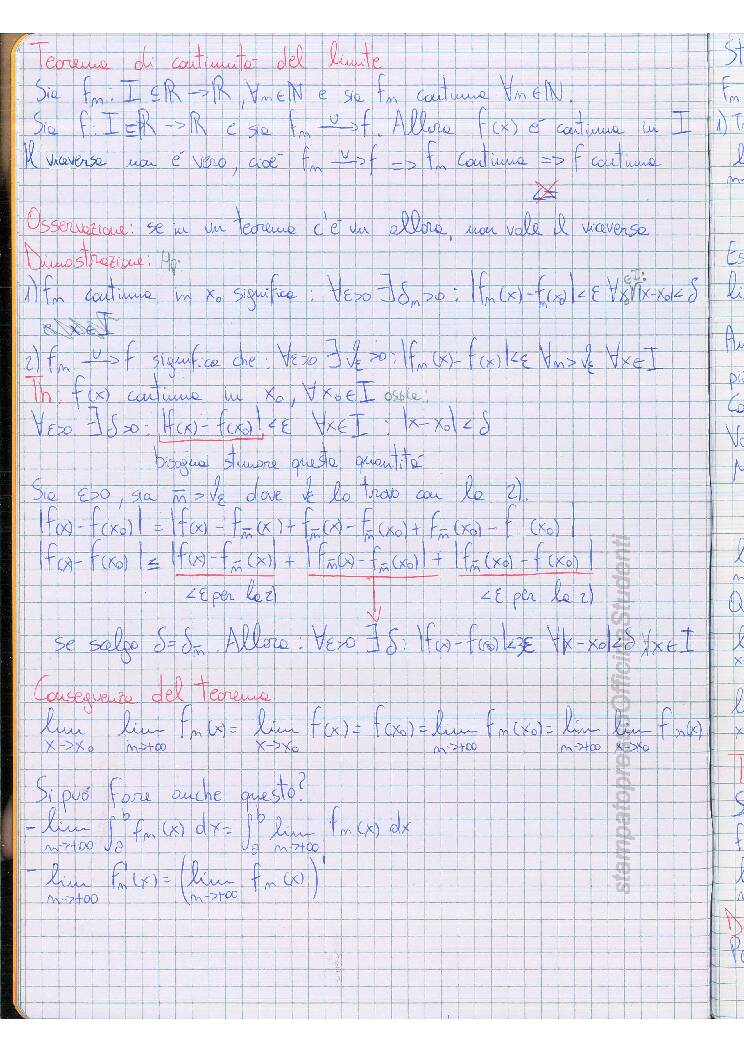 Teorema di continuità del limite
Sia fn: I ⊆ ℝ → ℝ, ∀n∈ℕ e sia fn continua ∀n∈ℕ.
Sia f: I ⊆ ℝ → ℝ e sia fn —u→ f. Allora f(x) è continua in I
Il viceversa non è vero, cioè fn —u→ f => fn continua => f continua
<≠
Osservazione: se in un teorema c'è un allora, non vale il viceversa
Dimostrazione: Hp:
1) fn continua in x0 significa: ∀ε>0 ∃ δn>0 : |fn(x)-fn(x0)|<ε ∀x∈I: |x-x0|<δ
2) fn —u→ f significa che: ∀ε>0 ∃ νε>0: |fn(x)-f(x)|<ε ∀n>νε ∀x∈I
Th: f(x) continua in x0, ∀x0∈I ossia:
∀ε>0 ∃ δ>0: |f(x)-f(x0)|<ε ∀x∈I : |x-x0|<δ
bisogna stimare questa quantità
Sia ε>0, sia n̄>νε dove νε lo trovo con la 2).
|f(x)-f(x0)| = |f(x)-fn̄(x)+fn̄(x)-fn̄(x0)+fn̄(x0)-f(x0)|
|f(x)-f(x0)| ≤ |f(x)-fn̄(x)| + |fn̄(x)-fn̄(x0)| + |fn̄(x0)-f(x0)|
<ε per la 2) <ε per la 2)
se scelgo δ=δn̄. Allora: ∀ε>0 ∃ δ: |f(x)-f(x0)|<3ε ∀|x-x0|<δ ∀x∈I
Conseguenza del teorema
lim x->x0 lim n->+∞ fn(x) = lim x->x0 f(x) = f(x0) = lim n->+∞ fn(x0) = lim n->+∞ lim x->x0 fn(x)
Si può fare anche questo?
- lim n->+∞ ∫ₐᵇ fn(x) dx = ∫ₐᵇ lim n->+∞ fn(x) dx
- lim n->+∞ f'n(x) = (lim n->+∞ fn(x))'
stampatopressoOfficinaStudenti